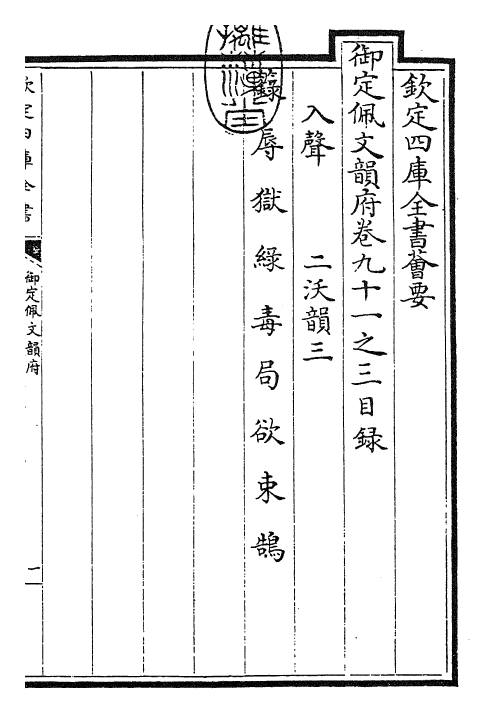 欽定四庫全書薈要
御定佩文韻府卷九十一之三目録
入聲　二沃韻三
録辱獄綠毒局欲束鵠
欽定四庫全書
御定佩文韻府
一